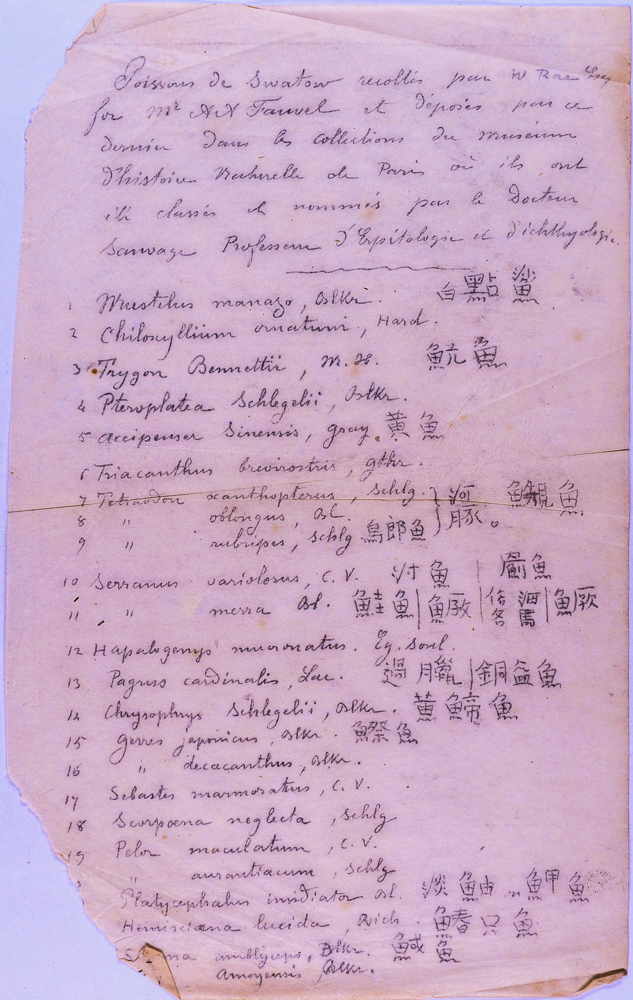 Poissons de Swatow recoltés par W Rae Esq
for Mr AA Fauvel et déposés par ce
dernier dans les collections du muséum
d'histoire Naturelle de Paris où ils ont
été classés et nommés par le Docteur
Sauvage Professeur d'Erpitologie et d'ichthyologie.
1 Mustelus manazo, Blkr. 白點鯊
2 Chiloscyllium ornatum, Hard.
3 Trygon Bennettii, M. H. 魧魚
4 Pteroplatea Schlegelii, Blkr.
5 Accipenser Sinensis, Gray. 黄魚
6 Triacanthus brevirostris, gthr.
7 Tetraodon xanthopterus, Schlg. 河豚。 魚
8 " oblongus, Bl.
9 " rubripes, Schlg 烏郎魚
10 Serranus variolosus, C. V. 魚 | 魚
11 " merra Bl. 鮭魚 | 鱖 | 俗名 海馬 | 鱖
12 Hapalogenys mucronatus. Ey. Soul.
13 Pagrus cardinalis, Lac. 過臘 | 銅盆魚
14 Chrysophrys Schlegelii, Blkr. 黄鯑魚
15 Gerres japonicus, Blkr. 鰶魚
16 " decacanthus, Blkr.
17 Sebastes marmoratus, C. V.
18 Scorpœna neglecta, Schlg
19 Pelor maculatum, C. V.
" aurantiacum, Schlg
Platycephalus insidiator Bl. 淡鮋 " 魻魚
Hemisciæna lucida, Rich. 鰆只魚
amblyceps, Blkr. 鰔魚
Amoyensis, Blkr.